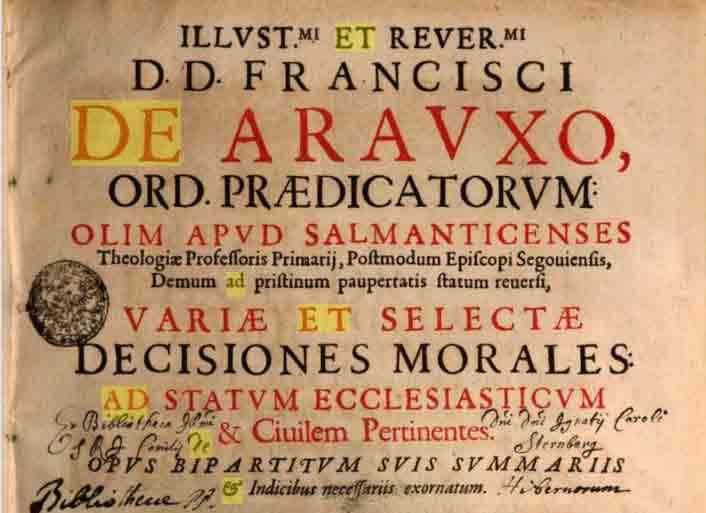 ILLVST.MI ET REVER.MI
D. D. FRANCISCI
DE ARAVXO,
ORD. PRÆDICATORVM:
OLIM APVD SALMANTICENSES
Theologiæ Professoris Primarij, Postmodum Episcopi Segouiensis,
Demum ad pristinum paupertatis statum reuersi,
VARIÆ ET SELECTÆ
DECISIONES MORALES:
AD STATVM ECCLESIASTICVM
Ex Bibliotheca Dñi Dñi Ignatij Caroli
& Ciuilem Pertinentes.
S R I Comitis de Sternberg
OPVS BIPARTITVM SVIS SVMMARIIS
& Indicibus necessariis exornatum.
Bibliothecæ PP. Hibernorum